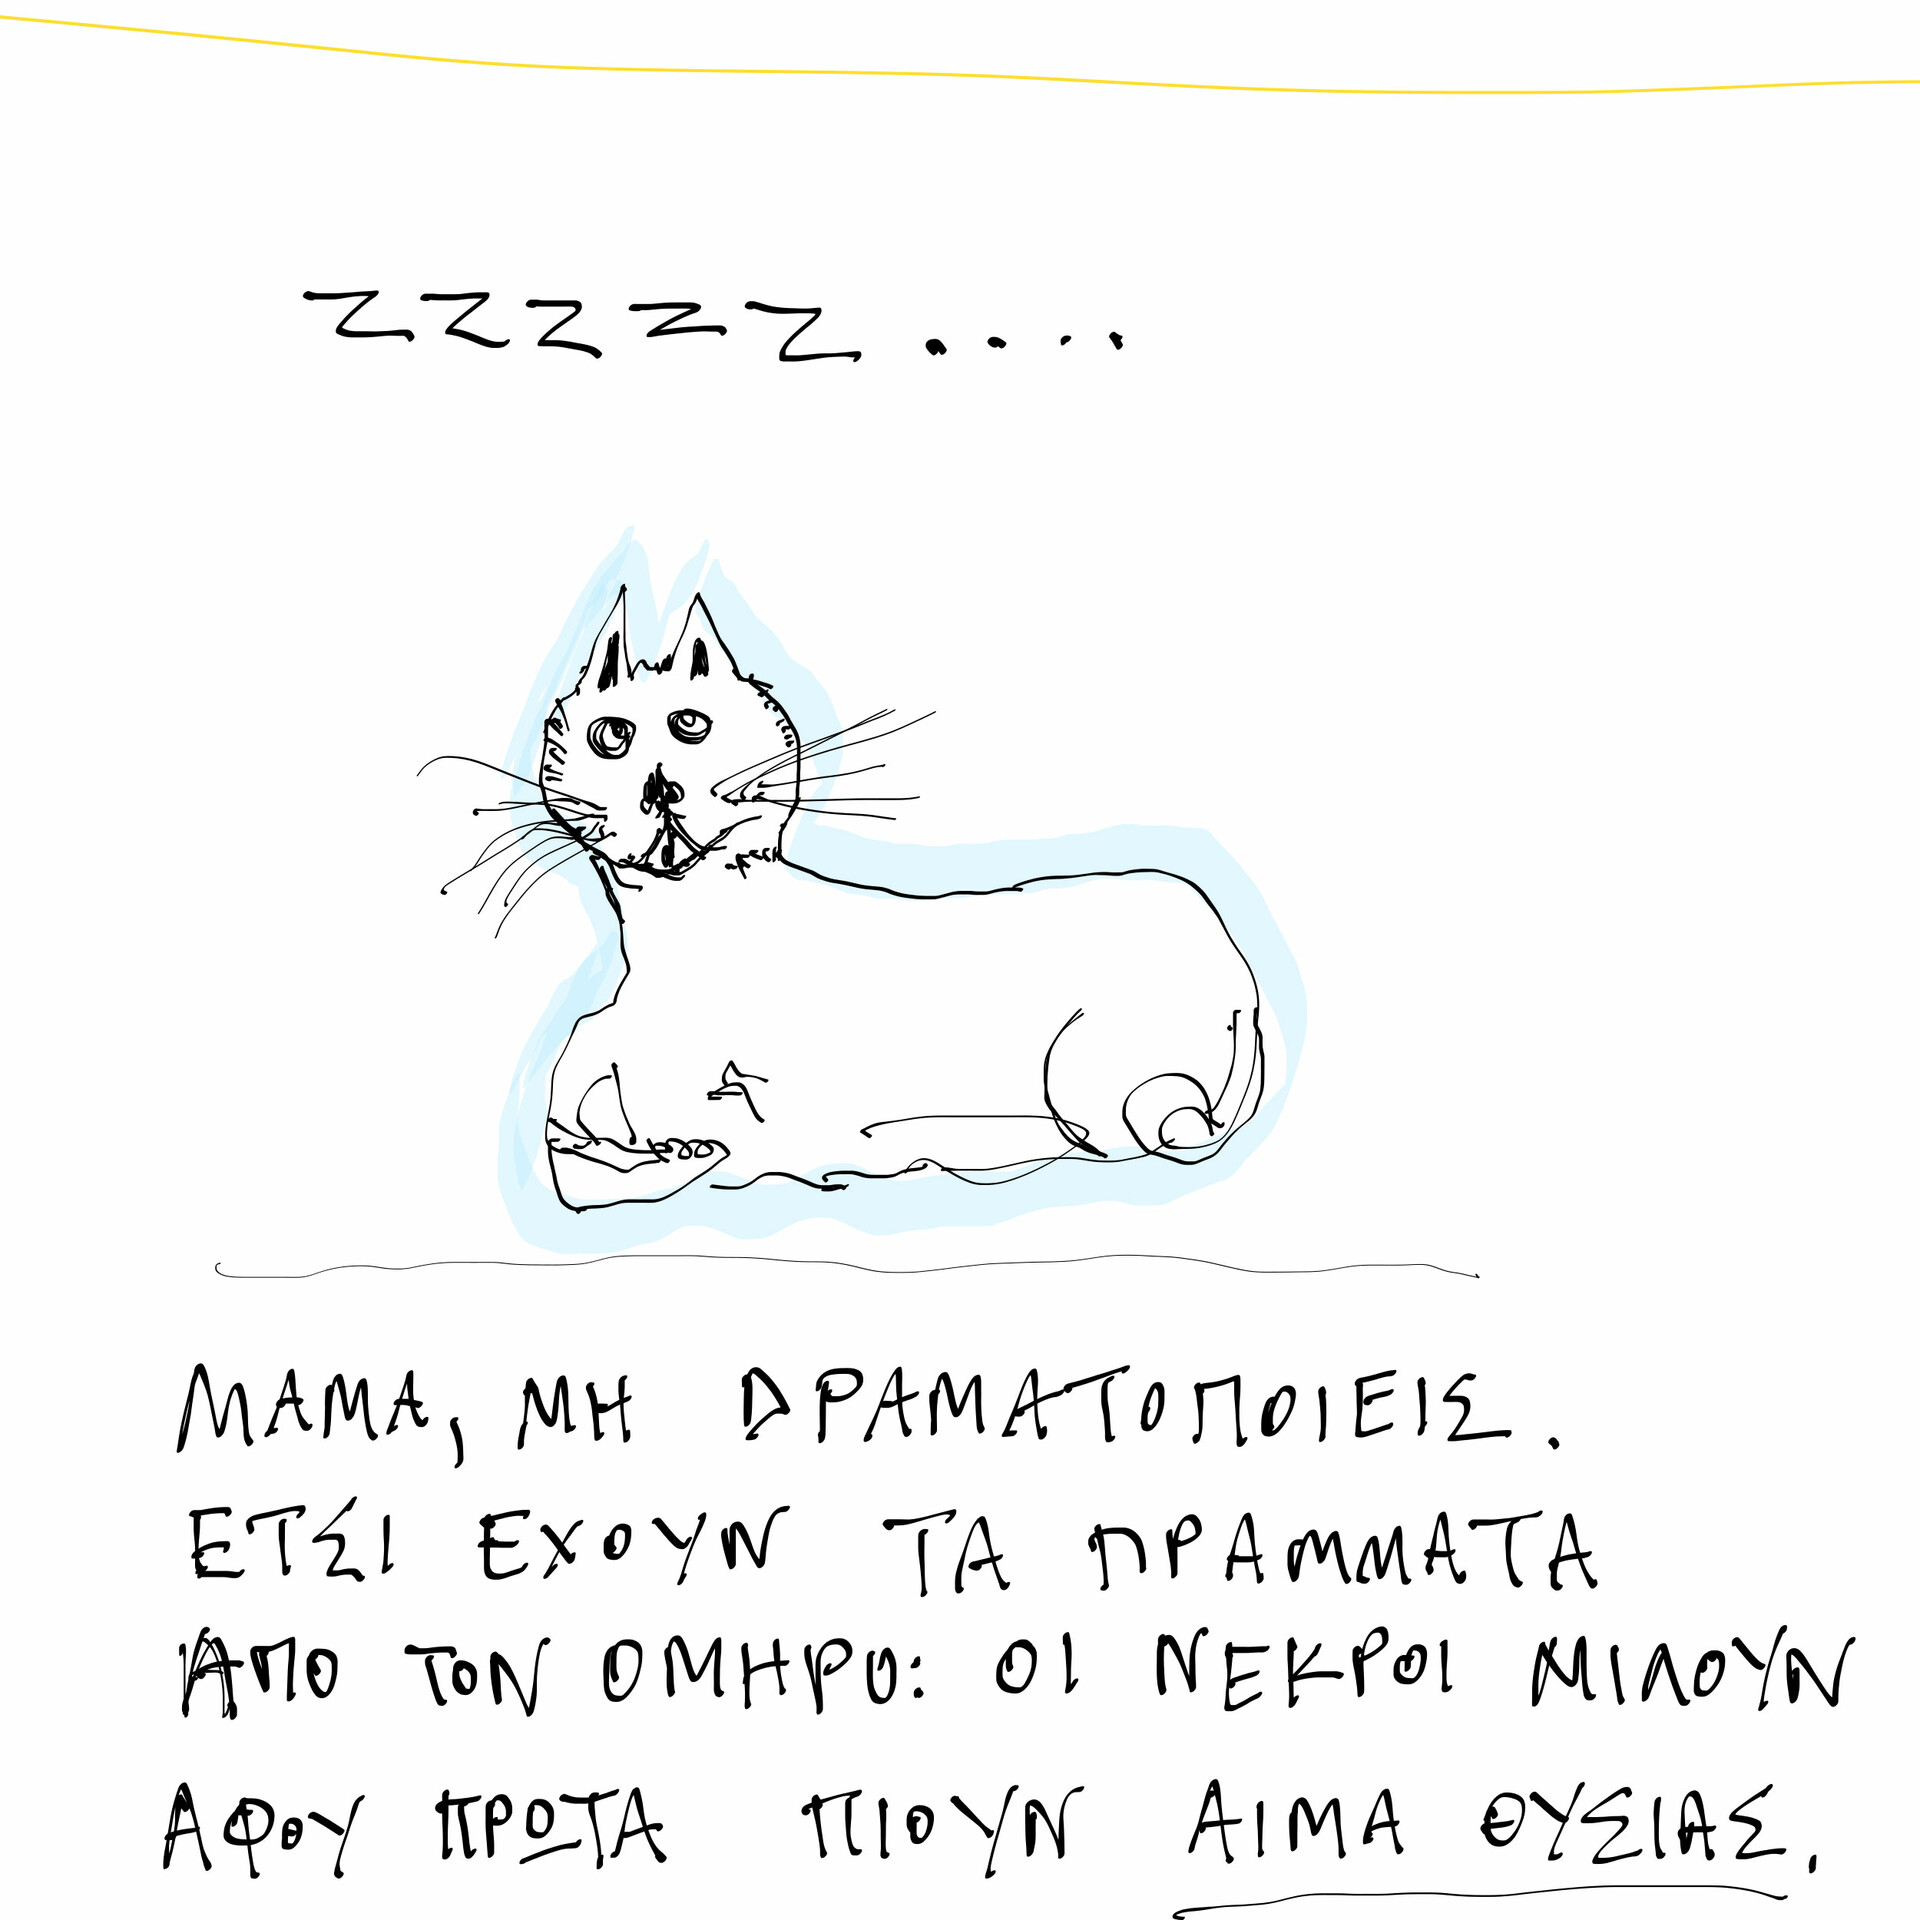 ΖΖΖΖΖ....
ΜΑΜΑ, ΜΗ ΔΡΑΜΑΤΟΠΟΙΕΙΣ.
ΕΤΣΙ ΕΧΟΥΝ ΤΑ ΠΡΑΜΜΑΤΑ
ΑΠΟ ΤΟΝ ΟΜΗΡΟ: ΟΙ ΝΕΚΡΟΙ ΜΙΛΟΥΝ
ΑΦΟΥ ΠΡΩΤΑ ΠΙΟΥΝ ΑΙΜΑ ΘΥΣΙΑΣ.